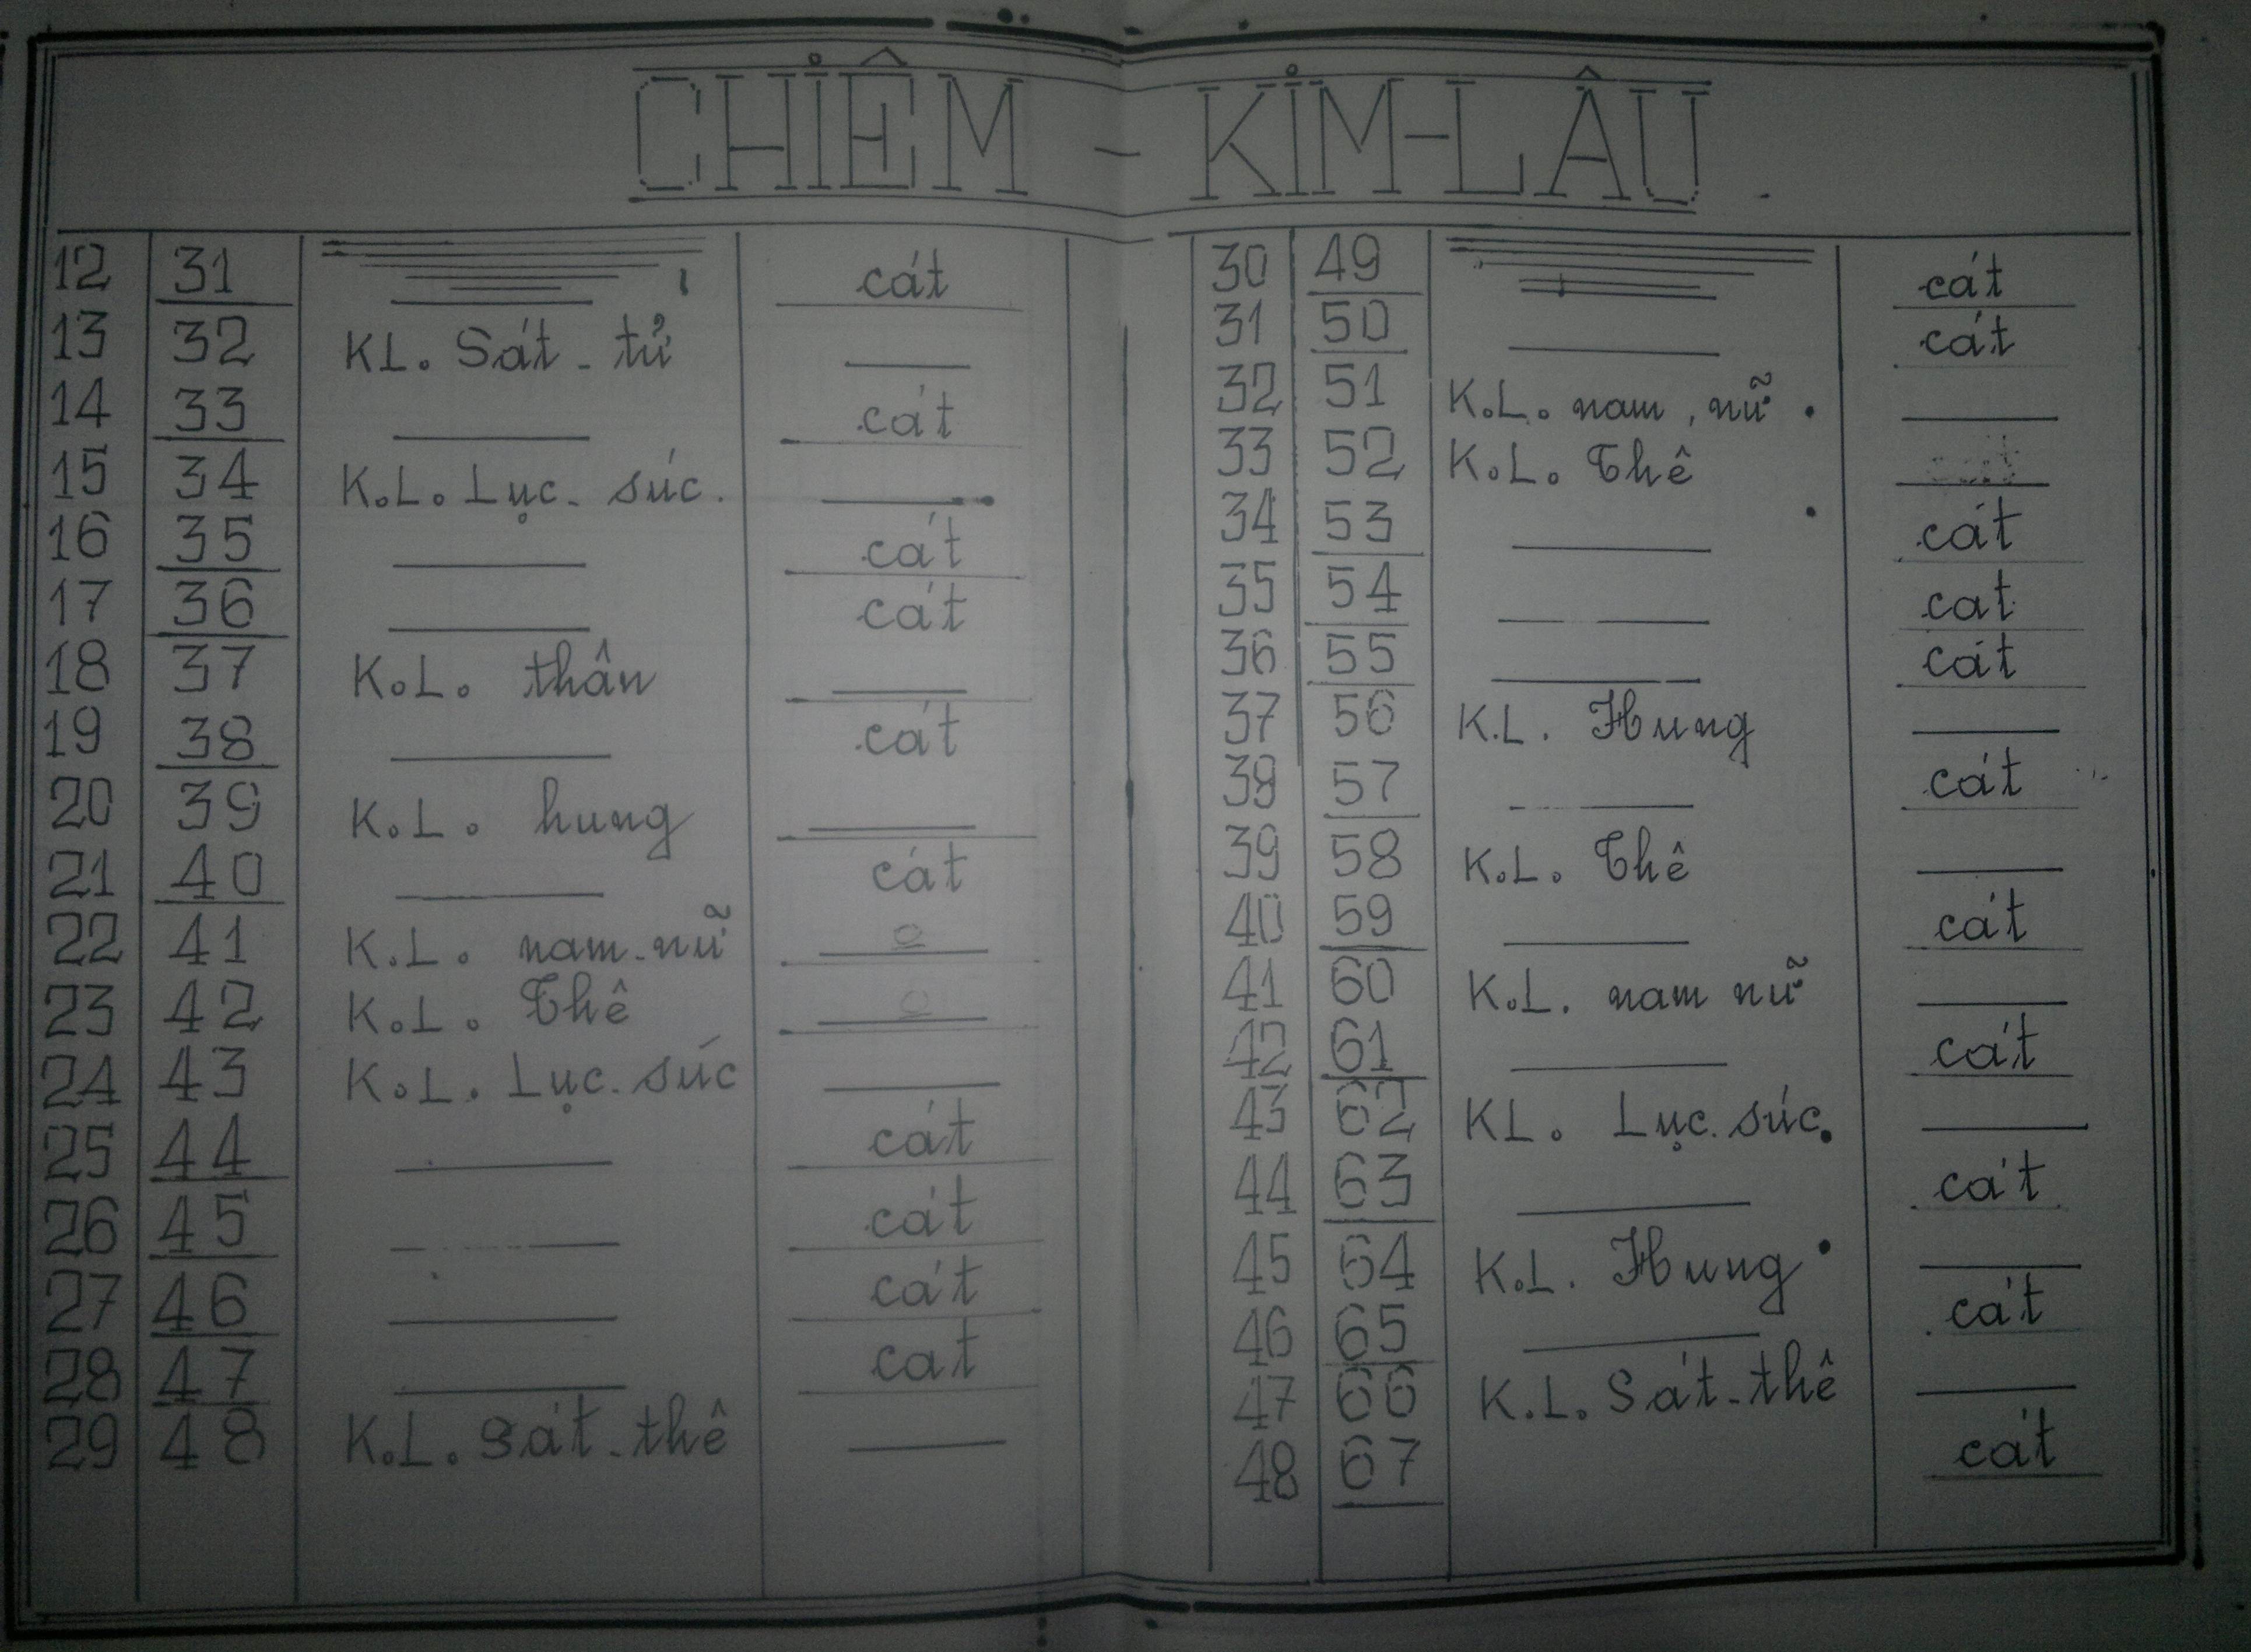 CHIÊM - KIM-LÂU
12 31 cát
13 32 KL. Sát - tử
14 33 cát
15 34 K.L. Lục - súc.
16 35 cát
17 36 cát
18 37 K.L. thân
19 38 cát
20 39 K.L. hung
21 40 cát
22 41 K.L. nam - nữ
23 42 K.L. Thê
24 43 K.L. Lục. súc
25 44 cát
26 45 cát
27 46 cát
28 47 cat
29 48 K.L. Sát - thê
30 49 cát
31 50 cát
32 51 K.L. nam, nữ
33 52 K.L. Thê
34 53 cát
35 54 cat
36 55 cát
37 56 K.L. Hung
38 57 cát
39 58 K.L. Thê
40 59 cát
41 60 K.L. nam nữ
42 61 cát
43 62 KL. Lục. súc.
44 63 cát
45 64 K.L. Hung
46 65 cát
47 66 K.L. Sát - thê
48 67 cát